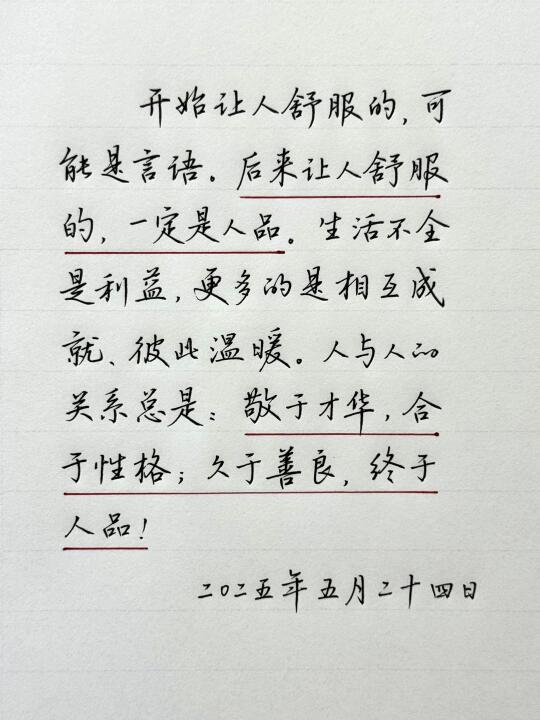 开始让人舒服的，可
能是言语。后来让人舒服
的，一定是人品。生活不全
是利益，更多的是相互成
就、彼此温暖。人与人的
关系总是：敬于才华，合
于性格；久于善良，终于
人品！
二〇二五年五月二十四日